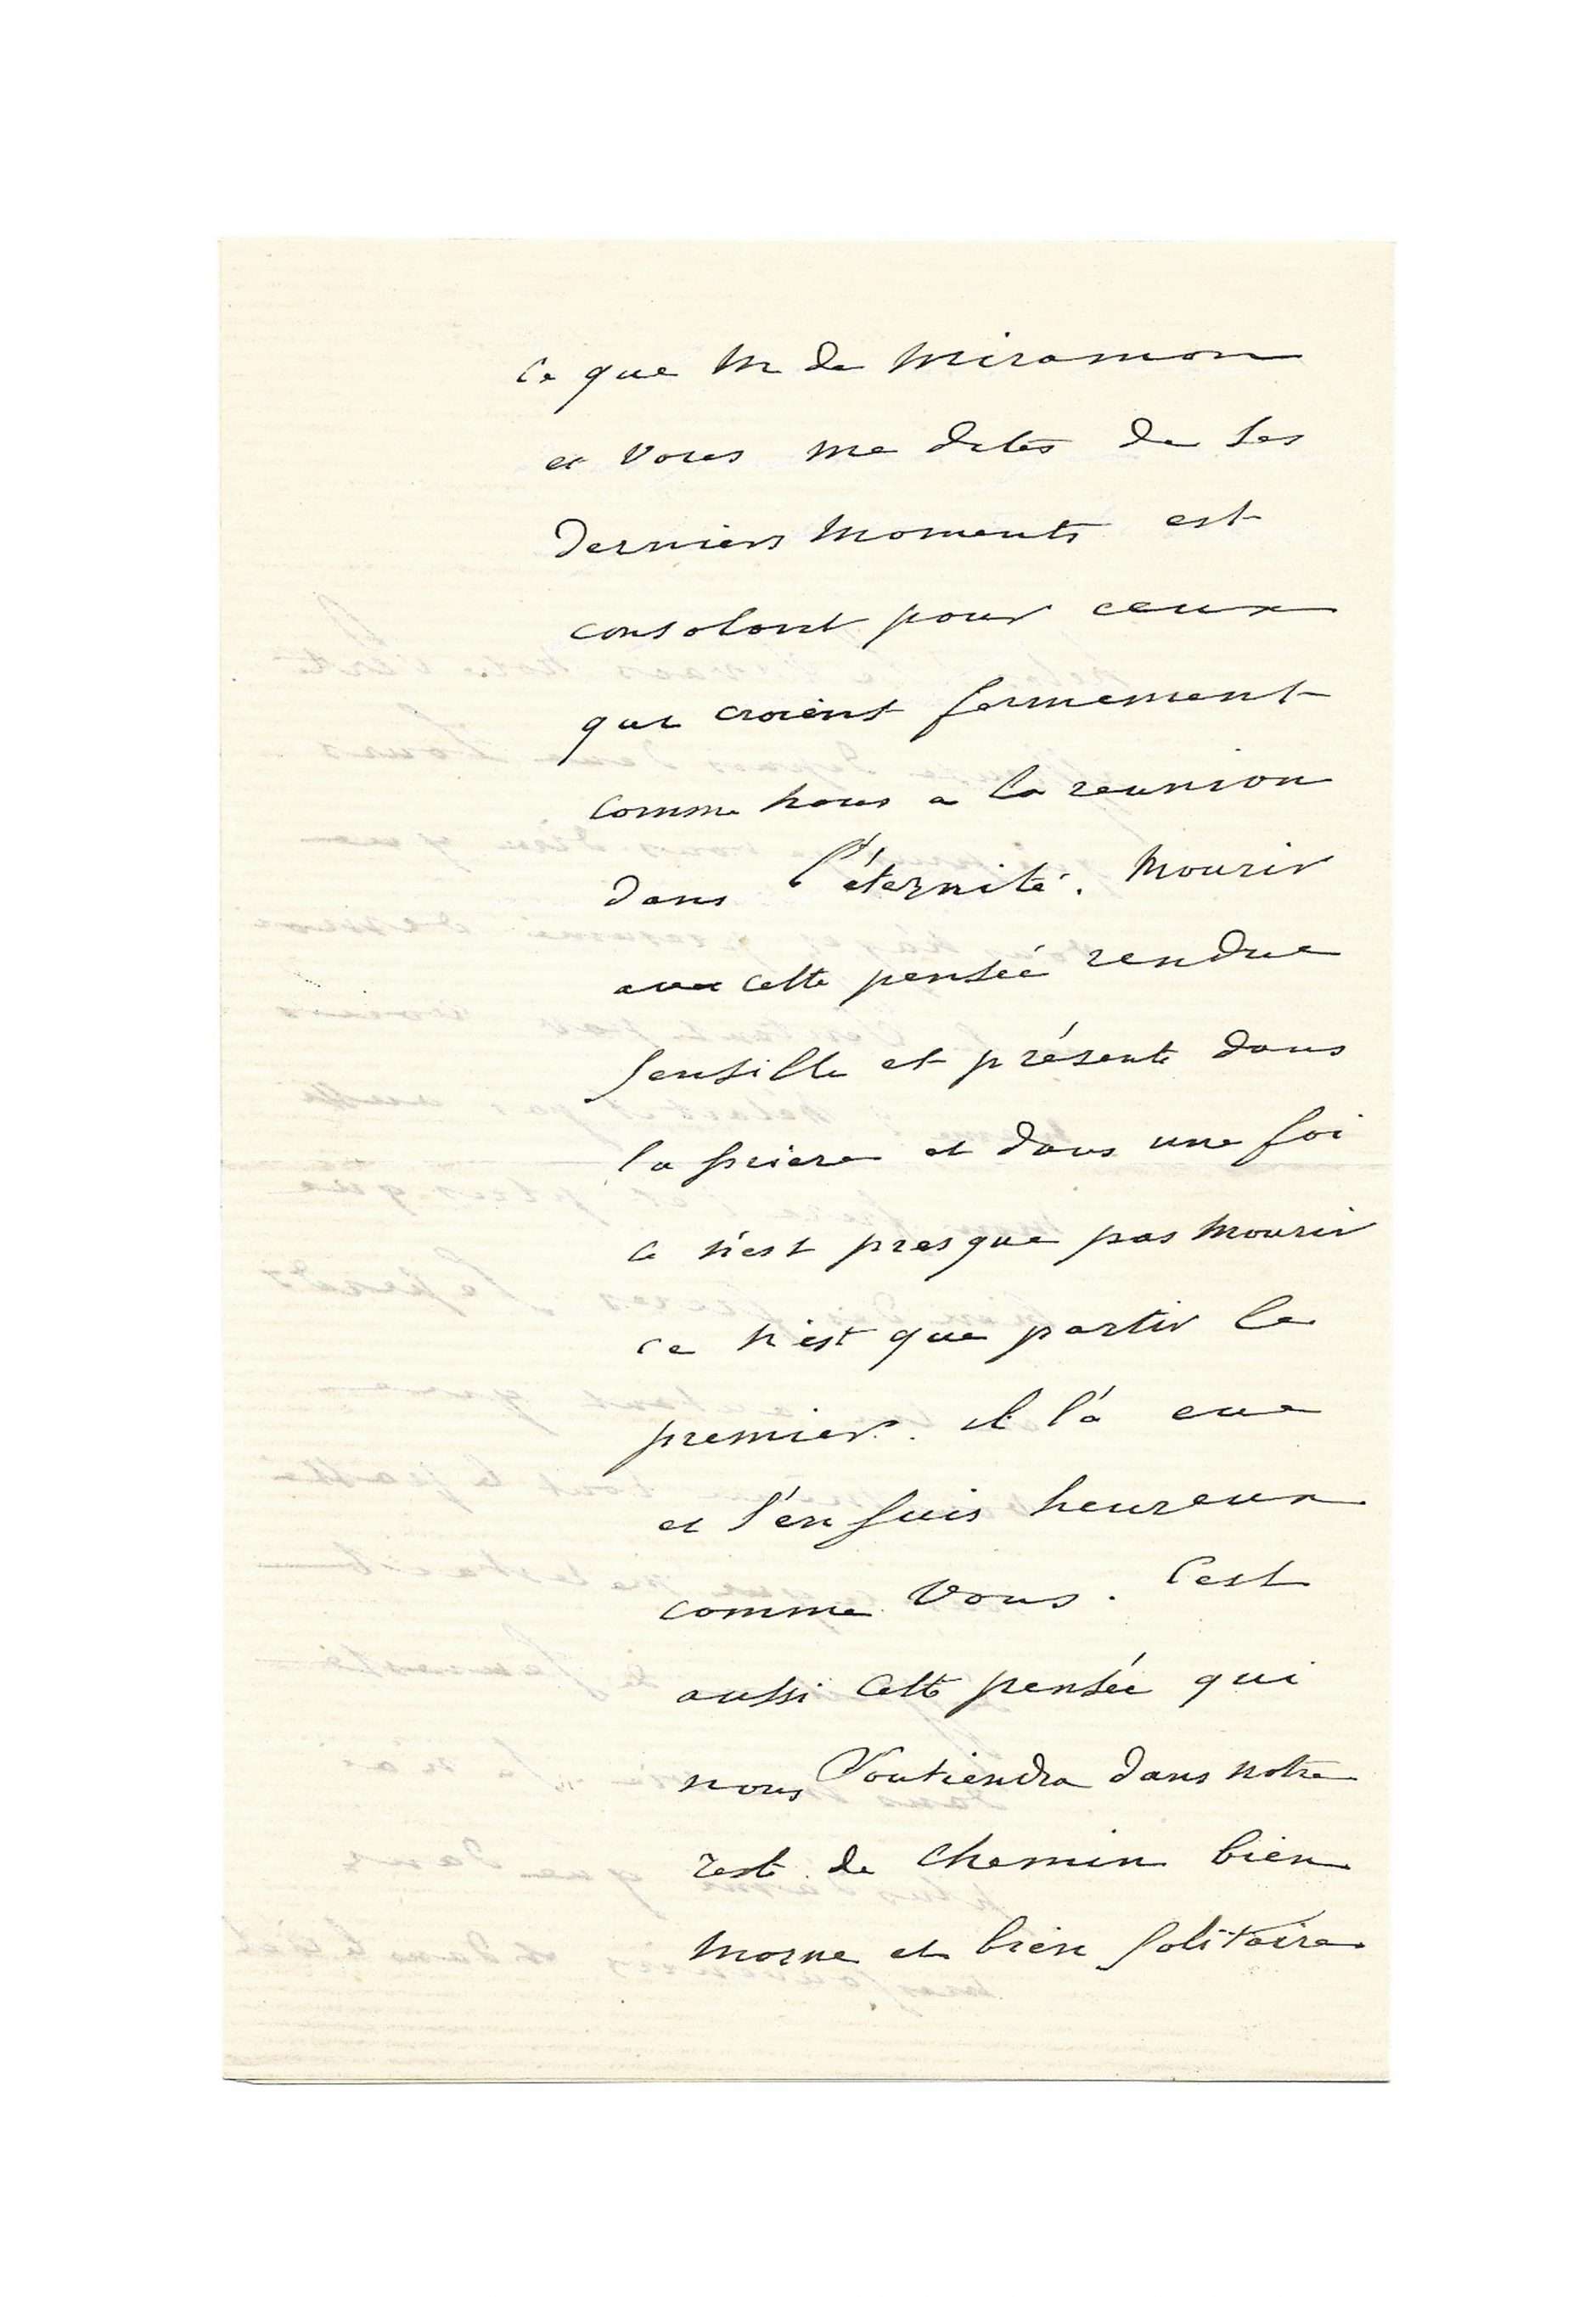 Ce que M de Miramon
et vous me dites de ses
derniers moments est
consolant pour ceux
qui croient fermement
comme nous a la reunion
dans l'éternité. Mourir
avec cette pensée rendue
sensible et présente dans
la priere et dans une foi
ce n'est presque pas mourir
ce n'est que partir le
premier. Il l'a eue
et j'en suis heureux
comme vous. C'est
aussi cette pensée qui
nous soutiendra dans notre
reste de chemin bien
morne et bien solitaire